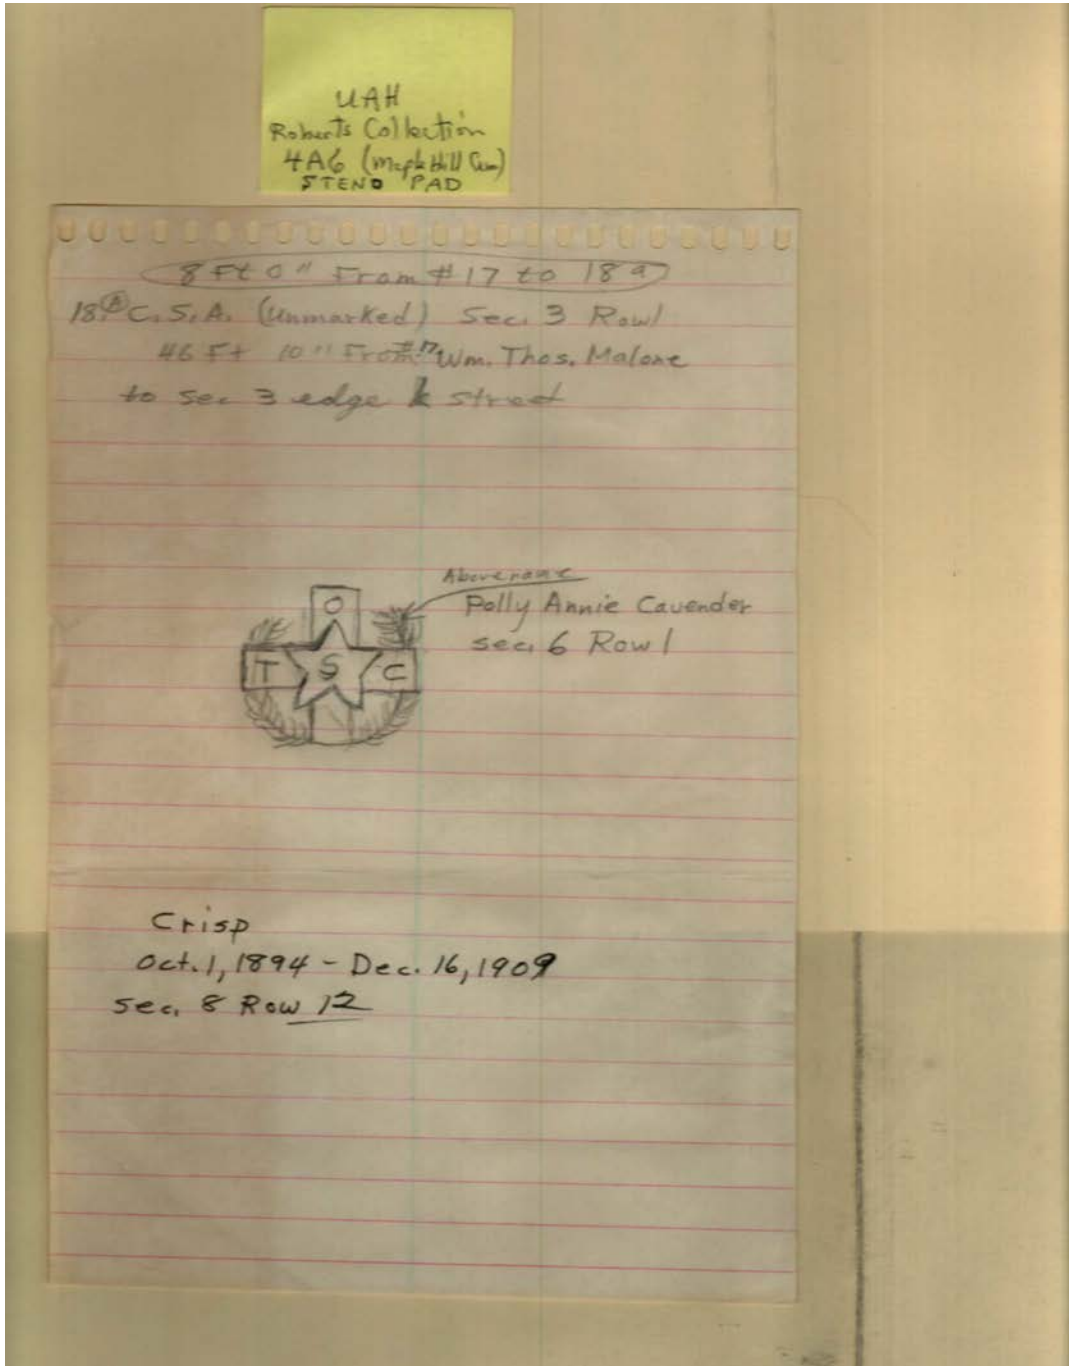 UAH
Roberts Collection
4A6 (Maple Hill Cem)
STENO PAD
8 Ft 0" From #17 to 18 a
18 A C.S.A. (Unmarked) Sec. 3 Row 1
46 Ft 10" From #17 Wm. Thos. Malone
to sec 3 edge street
Above name
Polly Annie Cavender
sec. 6 Row 1
O
T S C
Crisp
Oct. 1, 1894 - Dec. 16, 1909
Sec. 8 Row 12